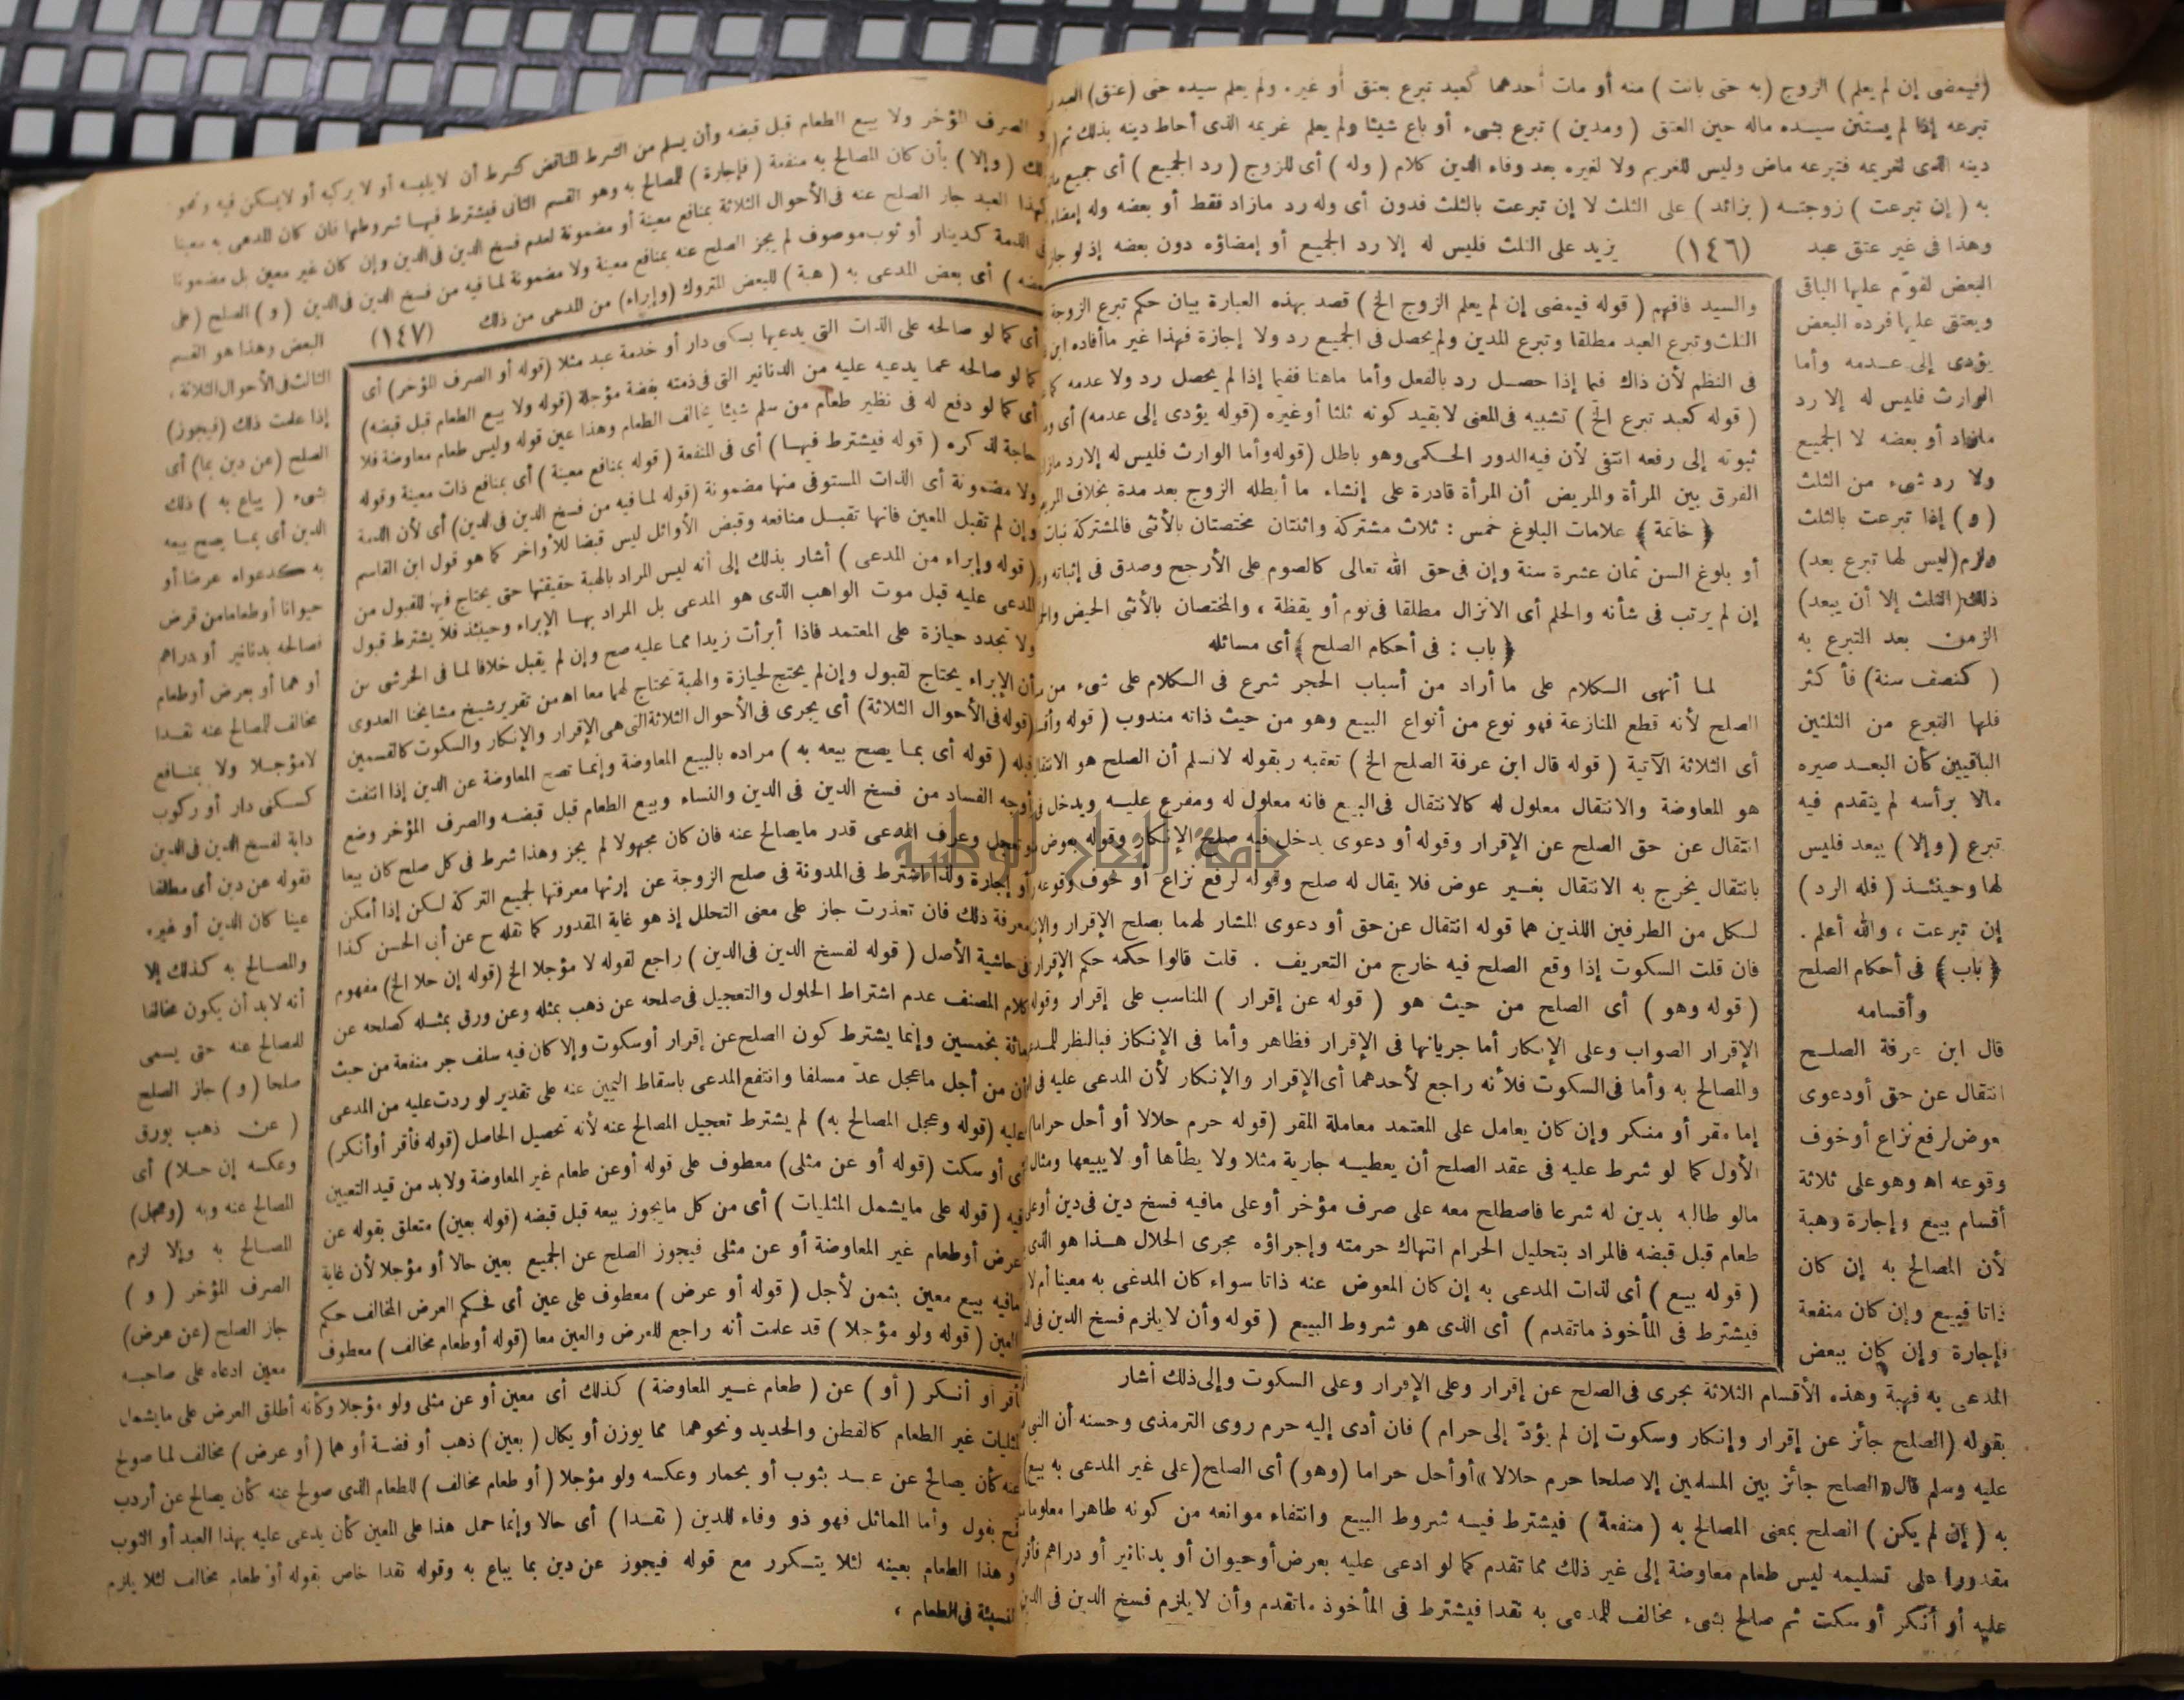 (فيمضى إن لم يعلم) الزوج (به حتى بانت) منه أو مات أحدهما كعبد تبرع بعتق أو غيره ولم يعلم سيده حتى (عتق) العبد
تبرعه إذا لم يستثن سيده ماله حين العتق (ومدين) تبرع بشىء أو باع شيئا ولم يعلم غريمه الذى أحاط دينه بذلك ثم
دينه الذى لغريمه فتبرعه ماض وليس للغريم ولا لغيره بعد وفاء الدين كلام (وله) أى للزوج (رد الجميع) أى جميع
به (إن تبرعت) زوجته (بزائد) على الثلث لا إن تبرعت بالثلث فدون أى وله رد مازاد فقط أو بعضه وله إمضاء
وهذا فى غير عتق عبد (١٤٦) يزيد على الثلث فليس له إلا رد الجميع أو إمضاؤه دون بعضه إذ لو جاز
البعض لقوّم عليها الباقى
ويعتق عليها فرده البعض
يؤدى إلى عدمه وأما
الوارث فليس له إلا رد
مازاد أو بعضه لا الجميع
ولا رد شىء من الثلث
(و) إذا تبرعت بالثلث
ولزم (ليس لها تبرع بعد)
ذلك (الثلث إلا أن يبعد)
الزمن بعد التبرع به
(كنصف سنة) فأكثر
فلها التبرع من الثلثين
الباقيين كأن البعد صيره
مالا برأسه لم يتقدم فيه
تبرع (وإلا) يبعد فليس
لها وحينئذ (فله الرد)
إن تبرعت ، والله أعلم .
﴿ باب ﴾ فى أحكام الصلح
وأقسامه
قال ابن عرفة الصلح
انتقال عن حق أودعوى
بعوض لرفع نزاع أوخوف
وقوعه اه وهو على ثلاثة
أقسام بيع وإجارة وهبة
لأن المصالح به إن كان
ذاتا فبيع وإن كان منفعة
فإجارة وإن كان ببعض
والسيد فافهم (قوله فيمضى إن لم يعلم الزوج الخ) قصد بهذه العبارة بيان حكم تبرع الزوجة
الثلث وتبرع العبد مطلقا وتبرع المدين ولم يحصل فى الجميع رد ولا إجازة فهذا غير ماأفاده ابن
فى النظم لأن ذاك فيما إذا حصل رد بالفعل وأما ماهنا ففيما إذا لم يحصل رد ولا عدمه
(قوله كعبد تبرع الخ) تشبيه فى المعنى لا بقيد كونه ثلثا أوغيره (قوله يؤدى إلى عدمه) أى
ثبوته إلى رفعه انتفى لأن فيه الدور الحكمى وهو باطل (قوله وأما الوارث فليس له إلا رد
الفرق بين المرأة والمريض أن المرأة قادرة على إنشاء ما أبطله الزوج بعد مدة بخلاف
﴿ خاتمة ﴾ علامات البلوغ خمس : ثلاث مشتركة واثنتان مختصتان بالأنثى فالمشتركة نبات
أو بلوغ السن ثمان عشرة سنة وإن فى حق الله تعالى كالصوم على الأرجح وصدق فى إثباته
إن لم يرتب فى شأنه والحلم أى الانزال مطلقا فى نوم أو يقظة ، والمختصان بالأنثى الحيض
﴿ باب : فى أحكام الصلح ﴾ أى مسائله
لما أنهى الكلام على ما أراد من أسباب الحجر شرع فى الكلام على شىء من
الصلح لأنه قطع المنازعة فهو نوع من أنواع البيع وهو من حيث ذاته مندوب (قوله
أى الثلاثة الآتية (قوله قال ابن عرفة الصلح الخ) تعقبه ر بقوله لا نسلم أن الصلح هو
هو المعاوضة والانتقال معلول له كالانتقال فى البيع فانه معلول له ومفرع عليه ويدخل
انتقال عن حق الصلح عن الإقرار وقوله أو دعوى يدخل فيه صلح الإنكار وقوله بعوض
بانتقال يخرج به الانتقال بغير عوض فلا يقال له صلح وقوله لرفع نزاع أو خوف وقوعه
لكل من الطرفين اللذين هما قوله انتقال عن حق أو دعوى المشار لهما بصلح الإقرار
فان قلت السكوت إذا وقع الصلح فيه خارج من التعريف . قلت قالوا حكمه حكم الإقرار
(قوله وهو) أى الصلح من حيث هو (قوله عن إقرار) المناسب على إقرار وقوله
الإقرار الصواب وعلى الإنكار أما جريانها فى الإقرار فظاهر وأما فى الإنكار فبالنظر
والمصالح به وأما فى السكوت فلأنه راجع لأحدهما أى الإقرار والإنكار لأن المدعى عليه
إما مقر أو منكر وإن كان يعامل على المعتمد معاملة المقر (قوله حرم حلالا أو أحل حراما)
الأول كما لو شرط عليه فى عقد الصلح أن يعطيه جارية مثلا ولا يطأها أو لا يبيعها ومثال
مالو طالبه بدين له شرعا فاصطلح معه على صرف مؤخر أوعلى مافيه فسخ دين فى دين
طعام قبل قبضه فالمراد بتحليل الحرام انتهاك حرمته وإجراؤه مجرى الحلال هذا هو الذى
(قوله بيع) أى لذات المدعى به إن كان المعوض عنه ذاتا سواء كان المدعى به معينا أم لا
فيشترط فى المأخوذ ماتقدم) أى الذى هو شروط البيع (قوله وأن لا يلزم فسخ الدين
المدعى به فهبة وهذه الأقسام الثلاثة تجرى فى الصلح عن إقرار وعلى الإقرار وعلى السكوت وإلى ذلك أشار
بقوله (الصلح جائز عن إقرار وإنكار وسكوت إن لم يؤدّ إلى حرام) فان أدى إليه حرم روى الترمذى وحسنه أن النبى
عليه وسلم قال «الصلح جائز بين المسلمين إلا صلحا حرم حلالا» أو أحل حراما (وهو) أى الصلح (على غير المدعى به بيع)
به (إن لم يكن) الصلح بمعنى المصالح به (منفعة) فيشترط فيه شروط البيع وانتفاء موانعه من كونه طاهرا معلوما
مقدورا على تسليمه ليس طعام معاوضة إلى غير ذلك مما تقدم كما لو ادعى عليه بعرض أوحيوان أو بدنانير أو دراهم فأقر
عليه أو أنكر أو سكت ثم صالح بشىء مخالف للمدعى به نقدا فيشترط فى المأخوذ ماتقدم وأن لا يلزم فسخ الدين فى الدين
الصرف المؤخر ولا بيع الطعام قبل قبضه وأن يسلم من الشرط المناقض كشرط أن لا يلبسه أو لا يركبه أو لا يسكن فيه ونحو
ذلك (وإلا) بأن كان المصالح به منفعة (فإجارة) للمصالح به وهو القسم الثانى فيشترط فيها شروطها فان كان المدعى به معينا
كهذا العبد جاز الصلح عنه فى الأحوال الثلاثة بمنافع معينة أو مضمونة لعدم فسخ الدين فى الدين وإن كان غير معين بل مضمونا
فى الذمة كدينار أو ثوب موصوف لم يجز الصلح عنه بمنافع معينة ولا مضمونة لما فيه من فسخ الدين فى الدين (و) الصلح (على
بعضه) أى بعض المدعى به (هبة) للبعض المتروك (وإبراء) من المدعى من ذلك (١٤٧)
البعض وهذا هو القسم
الثالث فى الأحوال الثلاثة ،
إذا علمت ذلك (فيجوز)
الصلح (عن دين بما) أى
بشىء (يباع به) ذلك
الدين أى بما يصح بيعه
به كدعواه عرضا أو
حيوانا أو طعاما من قرض
فصالحه بدنانير أو دراهم
أو هما أو بعرض أوطعام
مخالف للمصالح عنه نقدا
لا مؤجلا ولا بمنافع
كسكنى دار أو ركوب
دابة لفسخ الدين فى الدين
فقوله عن دين أى مطلقا
عينا كان الدين أو غيره
والمصالح به كذلك إلا
أنه لابد أن يكون مخالفا
للمصالح عنه حتى يسمى
صلحا (و) جاز الصلح
(عن ذهب بورق
وعكسه إن حلا) أى
المصالح عنه وبه (وعجل)
المصالح به وإلا لزم
الصرف المؤخر (و)
جاز الصلح (عن عرض)
معين ادعاه على صاحبه
أى كما لو صالحه على الذات التى يدعيها بسكنى دار أو خدمة عبد مثلا (قوله أو الصرف المؤخر) أى
كما لو صالحه عما يدعيه عليه من الدنانير التى فى ذمته بفضة مؤجلة (قوله ولا بيع الطعام قبل قبضه)
أى كما لو دفع له فى نظير طعام من سلم شيئا يخالف الطعام وهذا عين قوله وليس طعام معاوضة فلا
حاجة لذكره (قوله فيشترط فيها) أى فى المنفعة (قوله بمنافع معينة) أى بمنافع ذات معينة وقوله
ولا مضمونة أى الذات المستوفى منها مضمونة (قوله لما فيه من فسخ الدين فى الدين) أى لأن الذمة
وإن لم تقبل المعين فانها تقبل منافعه وقبض الأوائل ليس قبضا للأواخر كما هو قول ابن القاسم
(قوله وإبراء من المدعى) أشار بذلك إلى أنه ليس المراد بالهبة حقيقتها حتى يحتاج فيها للقبول من
المدعى عليه قبل موت الواهب الذى هو المدعى بل المراد بها الإبراء وحينئذ فلا يشترط قبول
ولا تجدد حيازة على المعتمد فاذا أبرأت زيدا مما عليه صح وإن لم يقبل خلافا لما فى الخرشى من
أن الإبراء يحتاج لقبول وإن لم يحتج لحيازة والهبة تحتاج لهما معا اه من تقرير شيخ مشايخنا العدوى
(قوله فى الأحوال الثلاثة) أى يجرى فى الأحوال الثلاثة التى هى الإقرار والإنكار والسكوت كالقسمين
قبله (قوله أى بما يصح بيعه به) مراده بالبيع المعاوضة وإنما تصح المعاوضة عن الدين إذا انتفت
أوجه الفساد من فسخ الدين فى الدين والنساء وبيع الطعام قبل قبضه والصرف المؤخر وضع
وتعجل وعرف المدعى قدر مايصالح عنه فان كان مجهولا لم يجز وهذا شرط فى كل صلح كان بيعا
أو إجارة ولذا اشترط فى المدونة فى صلح الزوجة عن إرثها معرفتها لجميع التركة لكن إذا أمكن
معرفة ذلك فان تعذرت جاز على معنى التحلل إذ هو غاية المقدور كما نقله ح عن أبى الحسن كذا
فى حاشية الأصل (قوله لفسخ الدين فى الدين) راجع لقوله لا مؤجلا الخ (قوله إن حلا الخ) مفهوم
كلام المصنف عدم اشتراط الحلول والتعجيل فى صلحه عن ذهب بمثله وعن ورق بمثله كصلحه عن
مائة بخمسين وإنما يشترط كون الصلح عن إقرار أوسكوت وإلا كان فيه سلف جر منفعة من حيث
أن من أجل ماعجل عدّ مسلفا وانتفع المدعى باسقاط اليمين عنه على تقدير لو ردت عليه من المدعى
عليه (قوله وعجل المصالح به) لم يشترط تعجيل المصالح عنه لأنه تحصيل الحاصل (قوله فأقر أوأنكر)
أى أو سكت (قوله أو عن مثلى) معطوف على قوله أوعن طعام غير المعاوضة ولابد من قيد التعيين
فيه (قوله على مايشمل المثليات) أى من كل مايجوز بيعه قبل قبضه (قوله بعين) متعلق بقوله عن
عرض أوطعام غير المعاوضة أو عن مثلى فيجوز الصلح عن الجميع بعين حالا أو مؤجلا لأن غاية
مافيه بيع معين بثمن لأجل (قوله أو عرض) معطوف على عين أى فحكم العرض المخالف حكم
العين (قوله ولو مؤجلا) قد علمت أنه راجع للعرض والعين معا (قوله أوطعام مخالف) معطوف
فأقر أو أنكر (أو) عن (طعام غير المعاوضة) كذلك أى معين أو عن مثلى ولو مؤجلا وكأنه أطلق العرض على مايشمل
المثليات غير الطعام كالقطن والحديد ونحوهما مما يوزن أو يكال (بعين) ذهب أو فضة أو هما (أو عرض) مخالف لما صولح
عنه كأن يصالح عن عبد بثوب أو بحمار وعكسه ولو مؤجلا (أو طعام مخالف) للطعام الذى صولح عنه كأن يصالح عن أردب
قمح بفول وأما المماثل فهو ذو وفاء للدين (نقدا) أى حالا وإنما حمل هذا على المعين كأن يدعى عليه بهذا العبد أو الثوب
أو هذا الطعام بعينه لئلا يتكرر مع قوله فيجوز عن دين بما يباع به وقوله نقدا خاص بقوله أو طعام مخالف لئلا يلزم
النسيئة فى الطعام ،
جامعة النجاح الوطنية